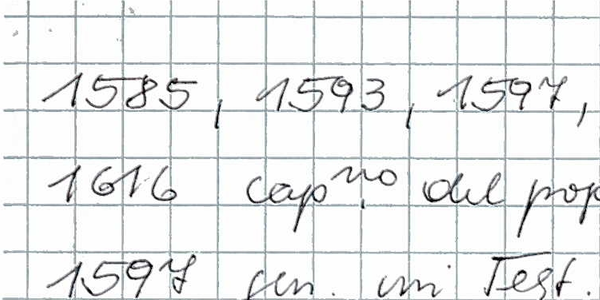 1585, 1593, 1597,
1616 cap.no del pop
1597 gen. im Test.